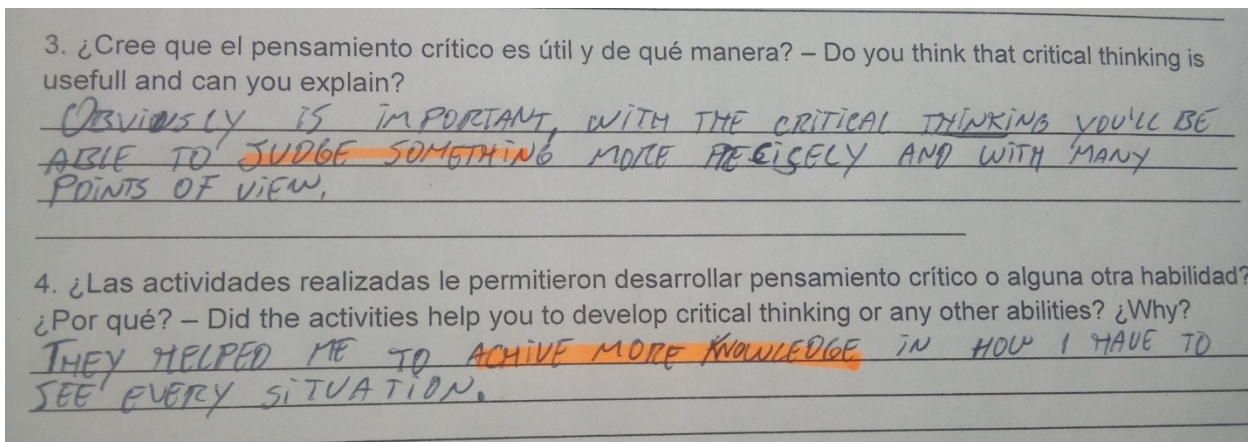 3. ¿Cree que el pensamiento crítico es útil y de qué manera? – Do you think that critical thinking is
usefull and can you explain?
OBVIOUSLY IS IMPORTANT, WITH THE CRITICAL THINKING YOU'LL BE
ABLE TO JUDGE SOMETHING MORE PRECISELY AND WITH MANY
POINTS OF VIEW.
4. ¿Las actividades realizadas le permitieron desarrollar pensamiento crítico o alguna otra habilidad?
¿Por qué? – Did the activities help you to develop critical thinking or any other abilities? ¿Why?
THEY HELPED ME TO ACHIVE MORE KNOWLEDGE IN HOW I HAVE TO
SEE EVERY SITUATION.